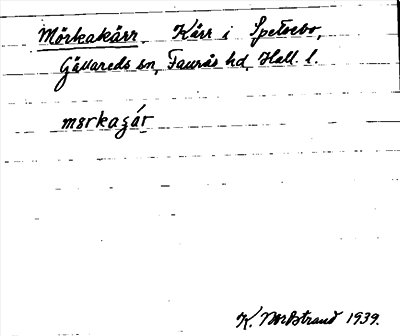 Mörkakärr. Kärr i Spetsebo,
Gällareds sn, Faurås hd, Hall. l.
mørkagár
K. Nordstrand 1939.